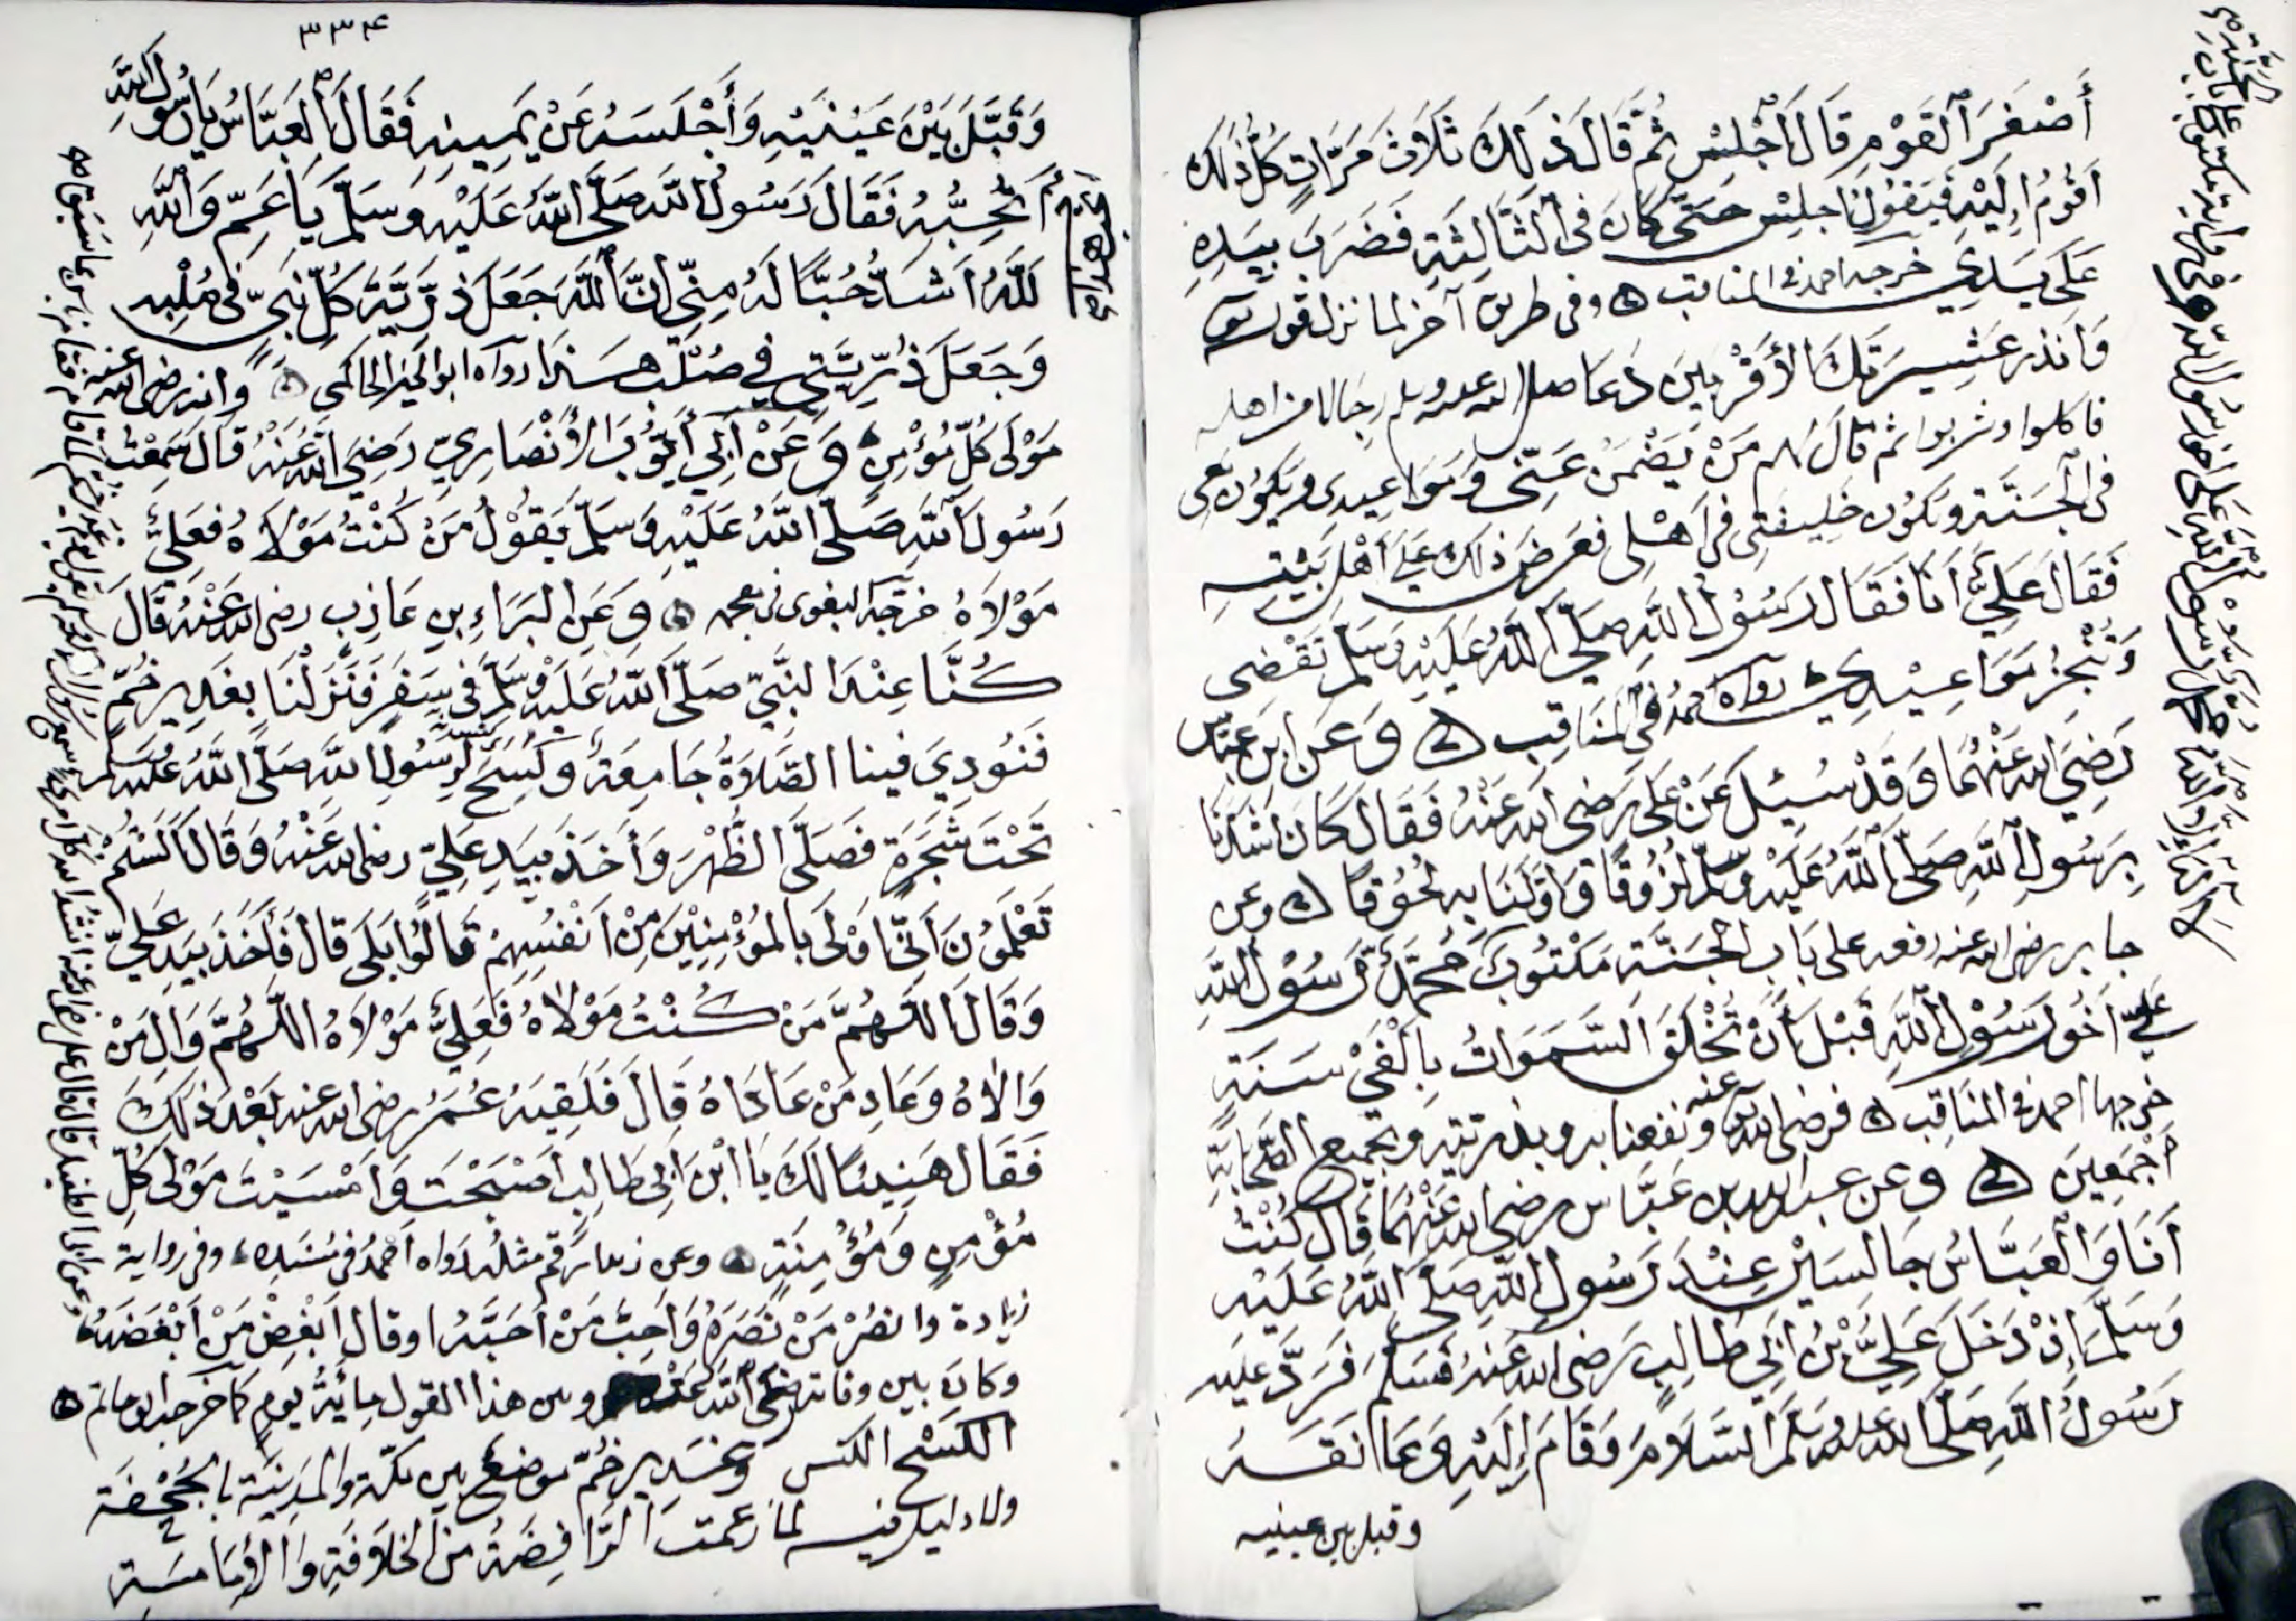 أَصْغَرَ ٱلقَوْمِ قَالَ ٱجْلِسْ ثُمَّ قَالَ ذٰلِكَ ثَلَاثَ مَرَّاتٍ كُلُّ ذٰلِكَ
اَقُومُ اِلَيْهِ فَيَقُولُ اجلِسْ حَتَّى كَانَ فِى ٱلثَّالِثَةِ فَضَرَبَ بِيَدِهِ
عَلَى يَدِي خرجه احمد فى المناقب ۞ وفى طريق آخر لما نزل قوله تع
وَانذر عَشِيرَتَكَ الأَقْرَبِينَ دَعَا صلى الله عليه وسلم رجالا من اهله
فاكلوا وشربوا ثم قال لهم مَنْ يَضْمَنُ عَنِّى وَمَوَاعِيدى ويكون معى
فى الْجَنَّةِ وَيَكُون خَلِيفَتِى فى اَهْلى فَعَرَضَ ذلك عَلَى أَهْلِ بَيْتِهِ
فَقَالَ عَلِيٌّ اَنَا فَقَالَ رَسُولُ اللّٰهِ صَلَّى ٱللَّهُ عَلَيْهِ وَسَلَّمَ تَقْضى
وَتُنْجِزُ مَوَاعِيْدِي رواه احمدُ فِى المنَاقِبِ ۞ وَعَنِ ابنِ عَبَّاس
رَضِيَ اللّٰه عَنْهُمَا وَقَدْ سُئِلَ عَنْ عَلىٍ رَضِى اللّٰه عَنْهُ فَقَالَ كَانَ اَشَدَّنَا
بِرَسُولِ ٱللَّهِ صَلَّى ٱللَّهُ عَلَيْهِ وَسَلَّمَ لُزُوقًا وَاَوَّلَنَا بِهِ لُحُوقًا ۞ وعن
جابر رضى الله عنه رفعه على بَابِ الْجَنَّةِ مَكْتُوبٌ مُحَمَّدٌ رَسُوْلُ ٱللَّهِ
عَلِيٌّ اَخُو رَسُوْلِ ٱللَّهِ قَبْلَ أَنْ تُخْلَقَ السَّمَوَاتُ بِاَلْفَيْ سَنَةٍ
خرجها احمد فى المناقب ۞ فرضى اللّٰه عنه ونفعنا به وبذريته وبجميع الصَّحَابَةِ
اَجْمَعِينَ ۞ وعن عبد اللّٰه بن عَبَّاسٍ رضى اللّٰه عَنْهُمَا قَالَ كُنْتُ
اَنَا وَٱلْعَبَّاسُ جَالِسَيْنِ عِنْدَ رَسُولِ اللّٰهِ صَلَّى ٱللَّهُ عَلَيْهِ
وَسَلَّمَ اِذْ دَخَلَ عَلِيُّ بْنُ اَبِي طَالِبٍ رَضِى اللّٰه عَنْهُ فَسَلَّمَ فَرَدَّ عَلَيْهِ
رَسُولُ اللّٰهِ صَلَّى اللّٰه عَلَيْهِ وَسَلَّمَ السَّلَامَ وَقَامَ اِلَيْهِ وَعَانَقَهُ
وقبل بين عينيه
٣٣٤
وَقَبَّلَ بَيْنَ عَيْنَيْهِ وَأَجْلَسَهُ عَنْ يَمِينِهِ فَقَالَ ٱلعَبَّاسُ يَا رَسُولَ ٱللَّهِ
أَتُحِبُّهُ فَقَالَ رَسُولُ اللّٰهِ صَلَّى اللّٰهُ عَلَيْهِ وَسَلَّمَ يَا عَمِّ وَٱللَّهِ
لَلَّهُ اَشَدُّ حُبًّا لَهُ مِنِّى اِنَّ ٱللَّهَ جَعَلَ ذُرِّيَّةَ كُلِّ نَبِىٍّ فى صُلْبِهِ
وَجَعَلَ ذُرِّيَّتِي فِي صُلْبِ هَذَا رواه ابو الخير الحاكمى ۞ وانه رضى اللّٰه عنه
مَوْلَى كُلِّ مُؤْمِنٍ وَعَنْ اَبِي أَيُّوبَ الأَنْصَارِيِّ رَضِيَ اللّٰه عَنْهُ قَالَ سَمِعْتُ
رَسُولَ ٱللَّهِ صَلَّى اللّٰهُ عَلَيْهِ وَسَلَّمَ يَقُوْلُ مَنْ كُنْتُ مَوْلَاهُ فَعَلِيٌّ
مَوْلَاهُ خرّجه البغوى فى معجمه ۞ وَعَنِ البَرَاءِ بنِ عَازِبٍ رضى اللّٰه عَنْهُ قَالَ
كُنَّا عِنْدَ النَّبِيِّ صَلَّى اللّٰهُ عَلَيْهِ وَسَلَّمَ فِى سَفَرٍ فَنَزَلْنَا بِغَدِيرِ خُمٍّ
فَنُودِيَ فِينا الصَّلَاةُ جَامِعَةٌ وَكُسِحَ لِرَسُولِ اللّٰهِ صَلَّى اللّٰهُ عَلَيْهِ وَسَلَّمَ
تَحْتَ شَجَرَةٍ فَصَلَّى الظُّهْرَ وَأَخَذَ بِيَدِ عَلِيٍّ رضى اللّٰه عَنْهُ وَقَالَ اَلَسْتُمْ
تَعْلَمُونَ اَنِّى اَوْلَى بِالمُؤْمِنِيْنَ مِنْ اَنْفُسِهِمْ قَالُوْا بَلَى قَالَ فَأَخَذَ بِيَدِ عَلِيٍّ
وَقَالَ اللّٰهُمَّ مَنْ كُنْتُ مَوْلَاهُ فَعَلِيٌّ مَوْلَاهُ اللّٰهُمَّ وَالِ مَنْ
وَالَاهُ وَعَادِ مَنْ عَادَاهُ قَالَ فَلَقِيَهُ عُمَرُ رضى اللّٰه عنه بَعْدَ ذٰلِكَ
فَقَالَ هَنِيْئًا لَكَ يَا ابْنَ اَبِى طَالِبٍ اَصْبَحْتَ وَاَمْسَيْتَ مَوْلَى كُلِّ
مُؤْمِنٍ وَمُؤْمِنَةٍ ۞ وعن زيد بن ارقم مثله رَوَاه اَحْمَدُ فى مُسْنَدِهِ وفى رواية
زيادة وانصُرْ مَنْ نَصَرَهُ وَاَحِبَّ مَنْ اَحَبَّهُ اوقال اَبْغِضْ مَنْ اَبْغَضَهُ
وكَانَ بين وفاته صلى اللّٰه عليه وسلم وبين هذا القول مِائَةُ يَومٍ كما خرجه ابو حاتم ۞
الكَسْح الكنس وَغَدِير خُمٍّ موضع بين مكّة والمَدِينَة بِالجُحْفَة
ولا دليل فيه لما زعمت الرَّافِضَةُ من الخلَافَةِ وَالاِمَامَةِ